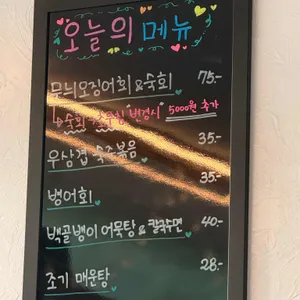 오늘의 메뉴
무늬오징어회 & 숙회 75.-
숙회 → 무침 "변경시" 5000원 추가
우삼겹 숙주볶음 35.-
병어회 35.-
백골뱅이 어묵탕 & 칼국수면 40.-
조기 매운탕 28.-